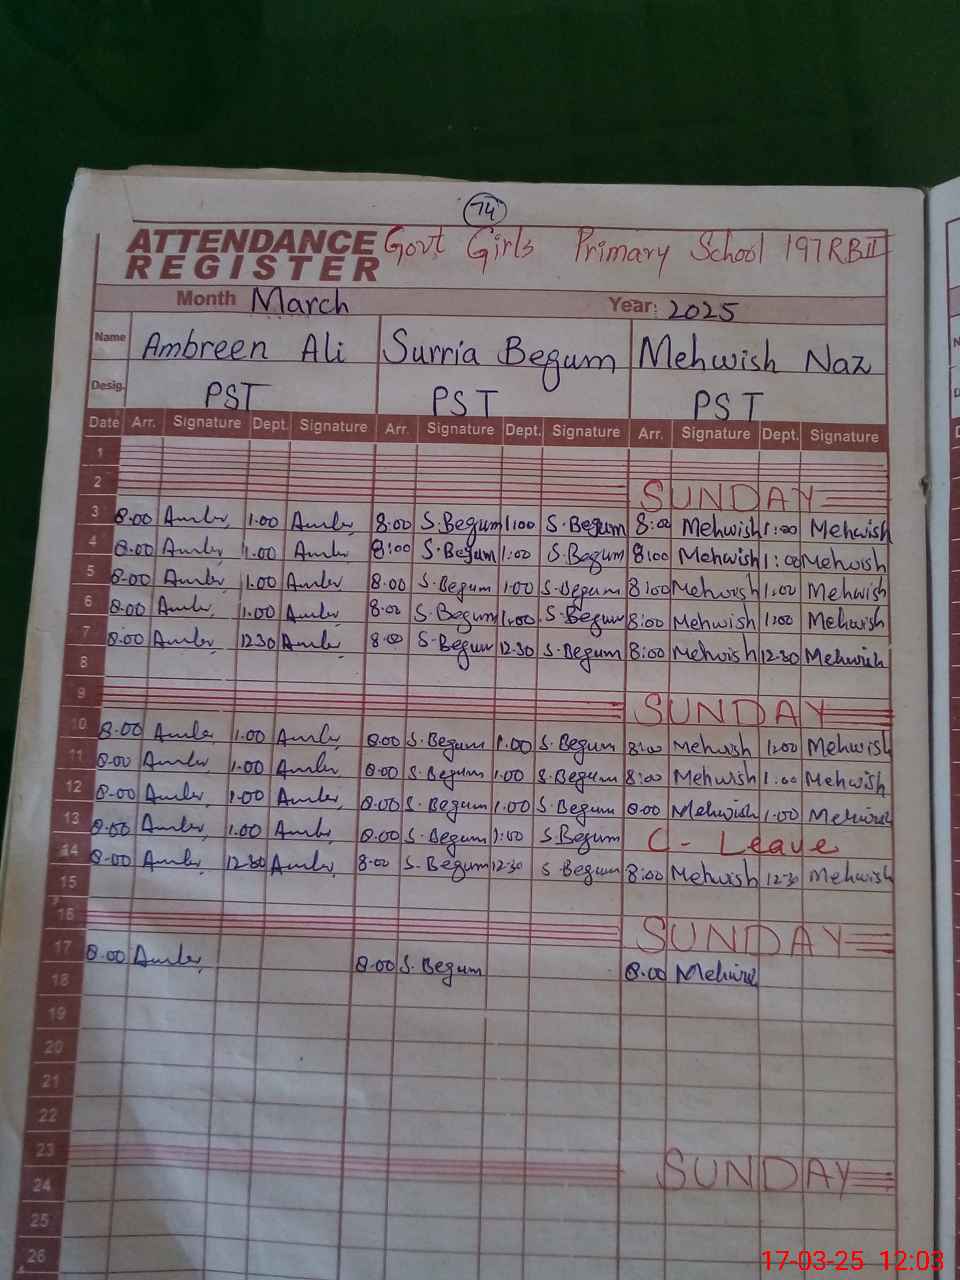 74
ATTENDANCE REGISTER Govt Girls Primary School 197RBII
Month March Year: 2025
Name Ambreen Ali Surria Begum Mehwish Naz
Desig. PST PST PST
Date Arr. Signature Dept. Signature Arr. Signature Dept. Signature Arr. Signature Dept. Signature
1
2 SUNDAY
3 8.00 Amber 1.00 Amber 8:00 S.Begum 1:00 S.Begum 8:00 Mehwish 1:00 Mehwish
4 8.00 Amber 1.00 Amber 8:00 S.Begum 1:00 S.Begum 8:00 Mehwish 1:00 Mehwish
5 8.00 Amber 1.00 Amber 8.00 S.Begum 1.00 S.Begum 8:00 Mehwish 1:00 Mehwish
6 8.00 Amber 1.00 Amber 8.00 S.Begum 1.00 S.Begum 8:00 Mehwish 1:00 Mehwish
7 8.00 Amber 12.30 Amber 8.00 S.Begum 12.30 S.Begum 8:00 Mehwish 12.30 Mehwish
8
9 SUNDAY
10 8.00 Amber 1.00 Amber 8.00 S.Begum 1.00 S.Begum 8:00 Mehwish 1:00 Mehwish
11 8.00 Amber 1.00 Amber 8.00 S.Begum 1.00 S.Begum 8:00 Mehwish 1:00 Mehwish
12 8.00 Amber 1.00 Amber 8.00 S.Begum 1.00 S.Begum 8.00 Mehwish 1.00 Mehwish
13 8.00 Amber 1.00 Amber 8.00 S.Begum 1:00 S.Begum C - Leave
14 8.00 Amber 12.30 Amber 8.00 S.Begum 12.30 S.Begum 8:00 Mehwish 12.30 Mehwish
15
16 SUNDAY
17 8.00 Amber 8.00 S.Begum 8.00 Mehwish
18
19
20
21
22
23 SUNDAY
24
25
26
17-03-25 12:03